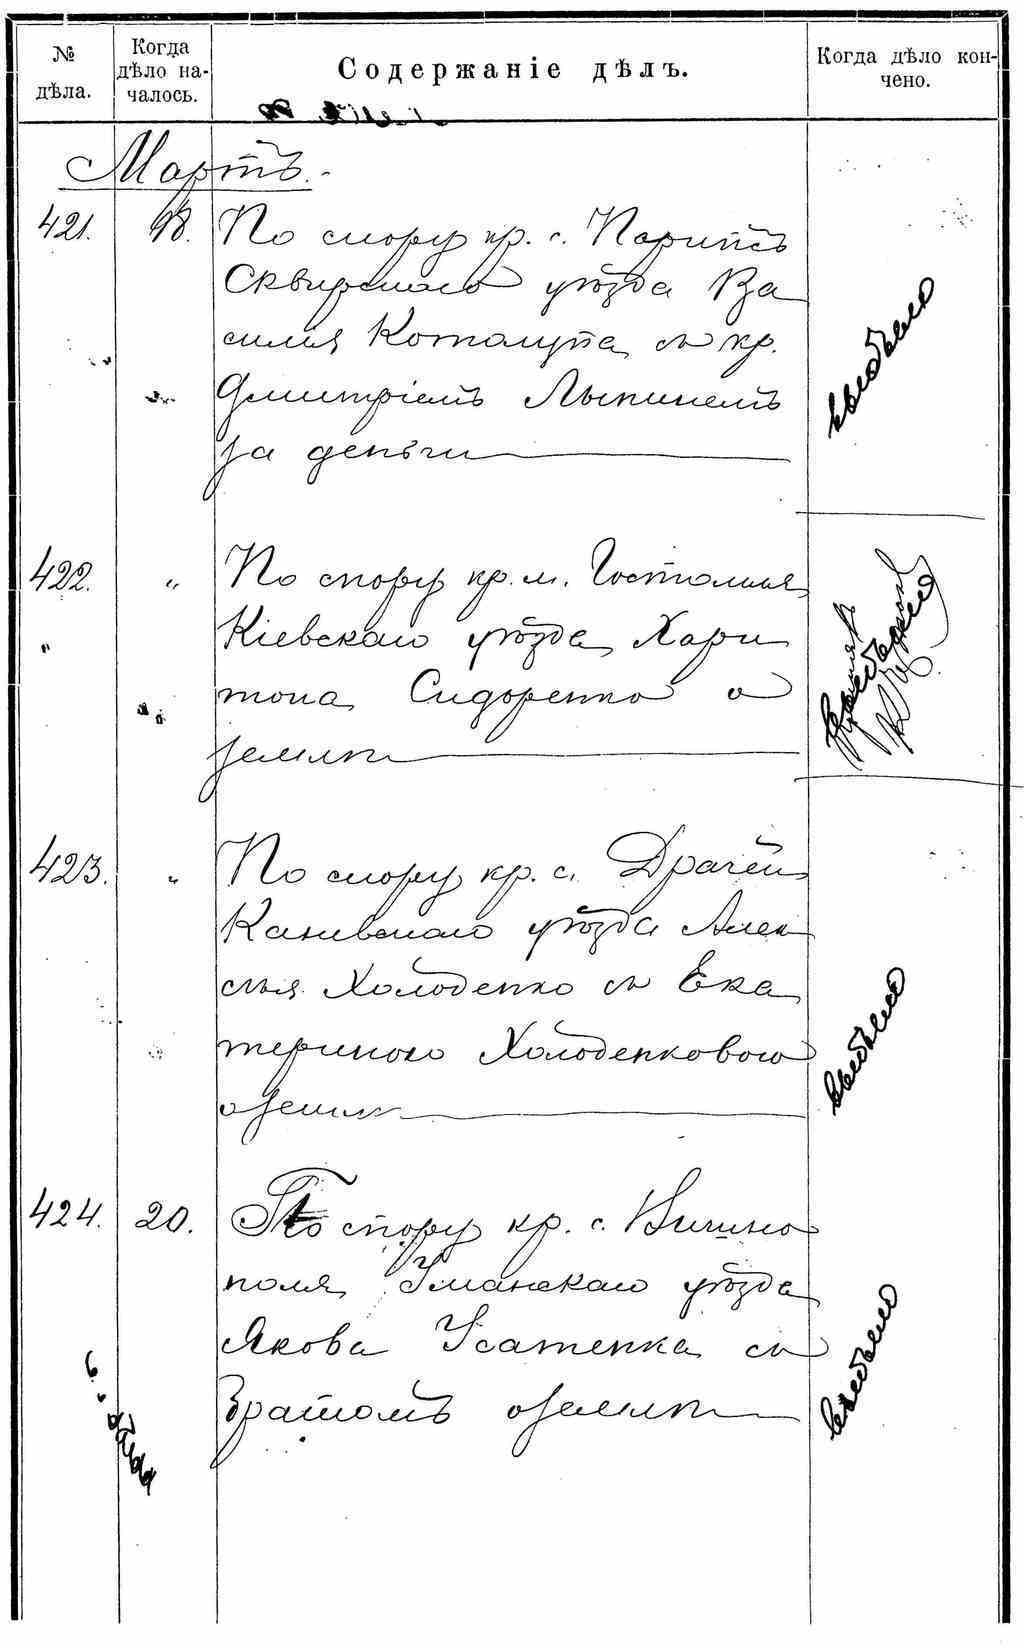 № дѣла.
Когда дѣло на-
чалось.
Содержаніе дѣлъ.
Когда дѣло кон-
чено.
Мартъ.
421. 18. По спору кр. с. Парипсъ
Сквирскаго уѣзда Ва
силія Котлупа съ кр.
Дмитріемъ
за деньги
422. " По спору кр. м. Гостомля
Кіевскаго уѣзда Хари
тона Сидоренко о
землѣ
423. " По спору кр. с. Драчей
Каневскаго уѣзда Алек
сѣя Холоденко съ Ека
териною Холоденковою
о землѣ
424. 20. По спору кр. с. Вишно
поля Уманскаго уѣзда
Якова Усатенка съ
братомъ о землѣ